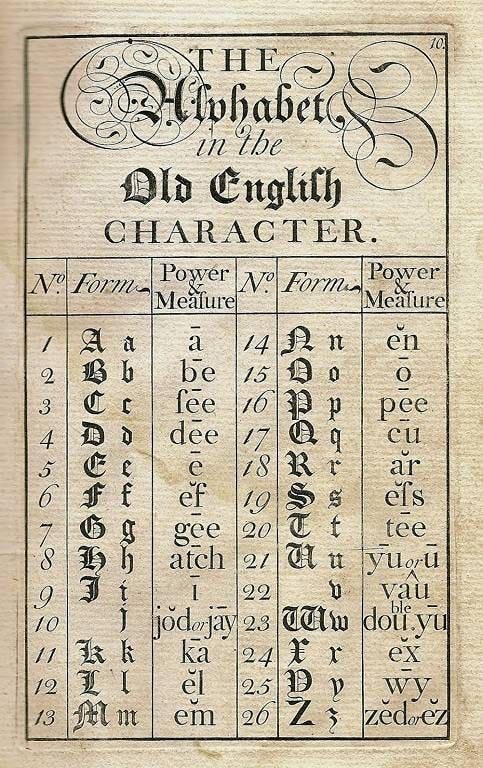 10.
THE
Alphabet
in the
Old Engliſh
CHARACTER.
Nº. Form Power & Meaſure Nº. Form Power & Meaſure
1 A a ā 14 N n ĕn
2 B b bē 15 O o ō
3 C c ſēe 16 P p pēe
4 D d dēe 17 Q q cū
5 E e ē 18 R r ăr
6 F f ĕf 19 S s ĕſs
7 G g gēe 20 T t tēe
8 H h atch 21 U u ȳu or ū
9 I i ī 22 v vâu
10 j jŏd or jāy 23 W w double yū
11 K k kā 24 X x ĕx
12 L l ĕl 25 Y y wȳ
13 M m ĕm 26 Z z zĕd or ĕz